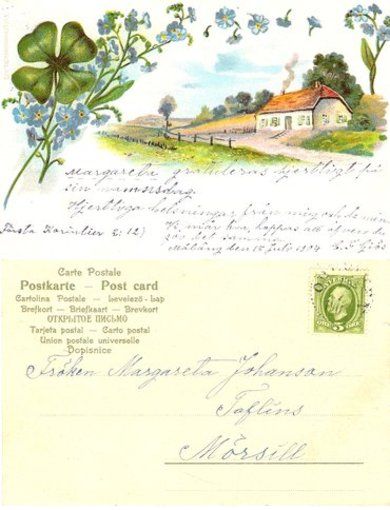 Margareta gratuleras hjertligt på
sin namnsdag.
Hjertliga helsningar från mig och de mina
Vi mår bra, hoppas att äfven de
(2 12)
den 15 juli 1904
Carte Postale
Postkarte – Post card
Cartolina Postale – Levelező-Lap
Brefkort – Briefkaart – Brevkort
ОТКРЫТОЕ ПИСЬМО
Tarjeta postal – Carto postal
Union postale universelle
Dopisnice
5
Fröken Margareta Johanson
Taflins
Mörsill